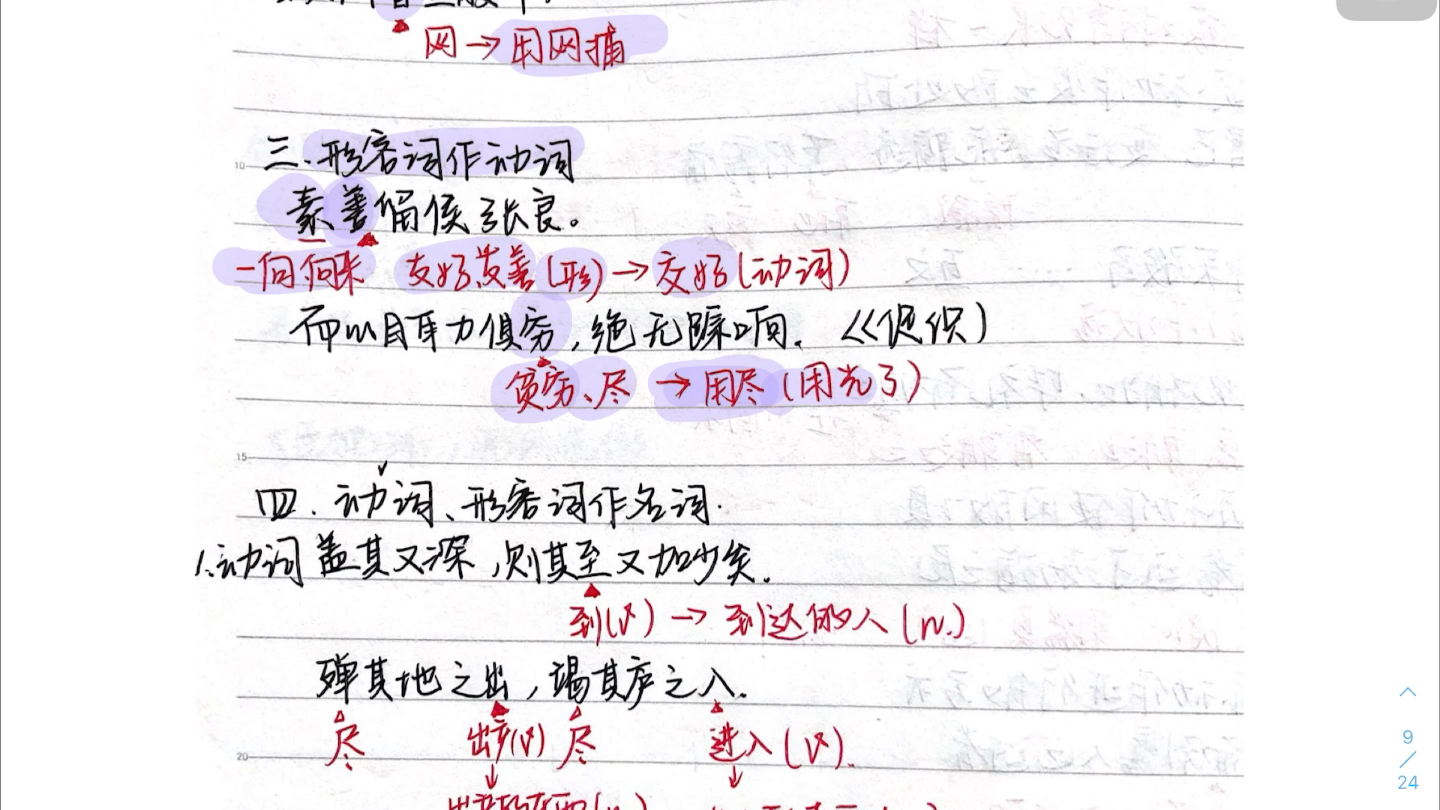 网→用网捕
三、形容词作动词
素善留侯张良。
一向向来 友好友善(形)→交好(动词)
而以目耳力俱穷,绝无踪响.《促织》
贫穷、尽 → 用尽(用光了)
四.动词、形容词作名词.
1.动词 盖其又深,则其至又加少矣.
到(v)→ 到达的人(n.)
殚其地之出,竭其庐之入.
尽 出产(v) 尽 进入(v).
9
/
24